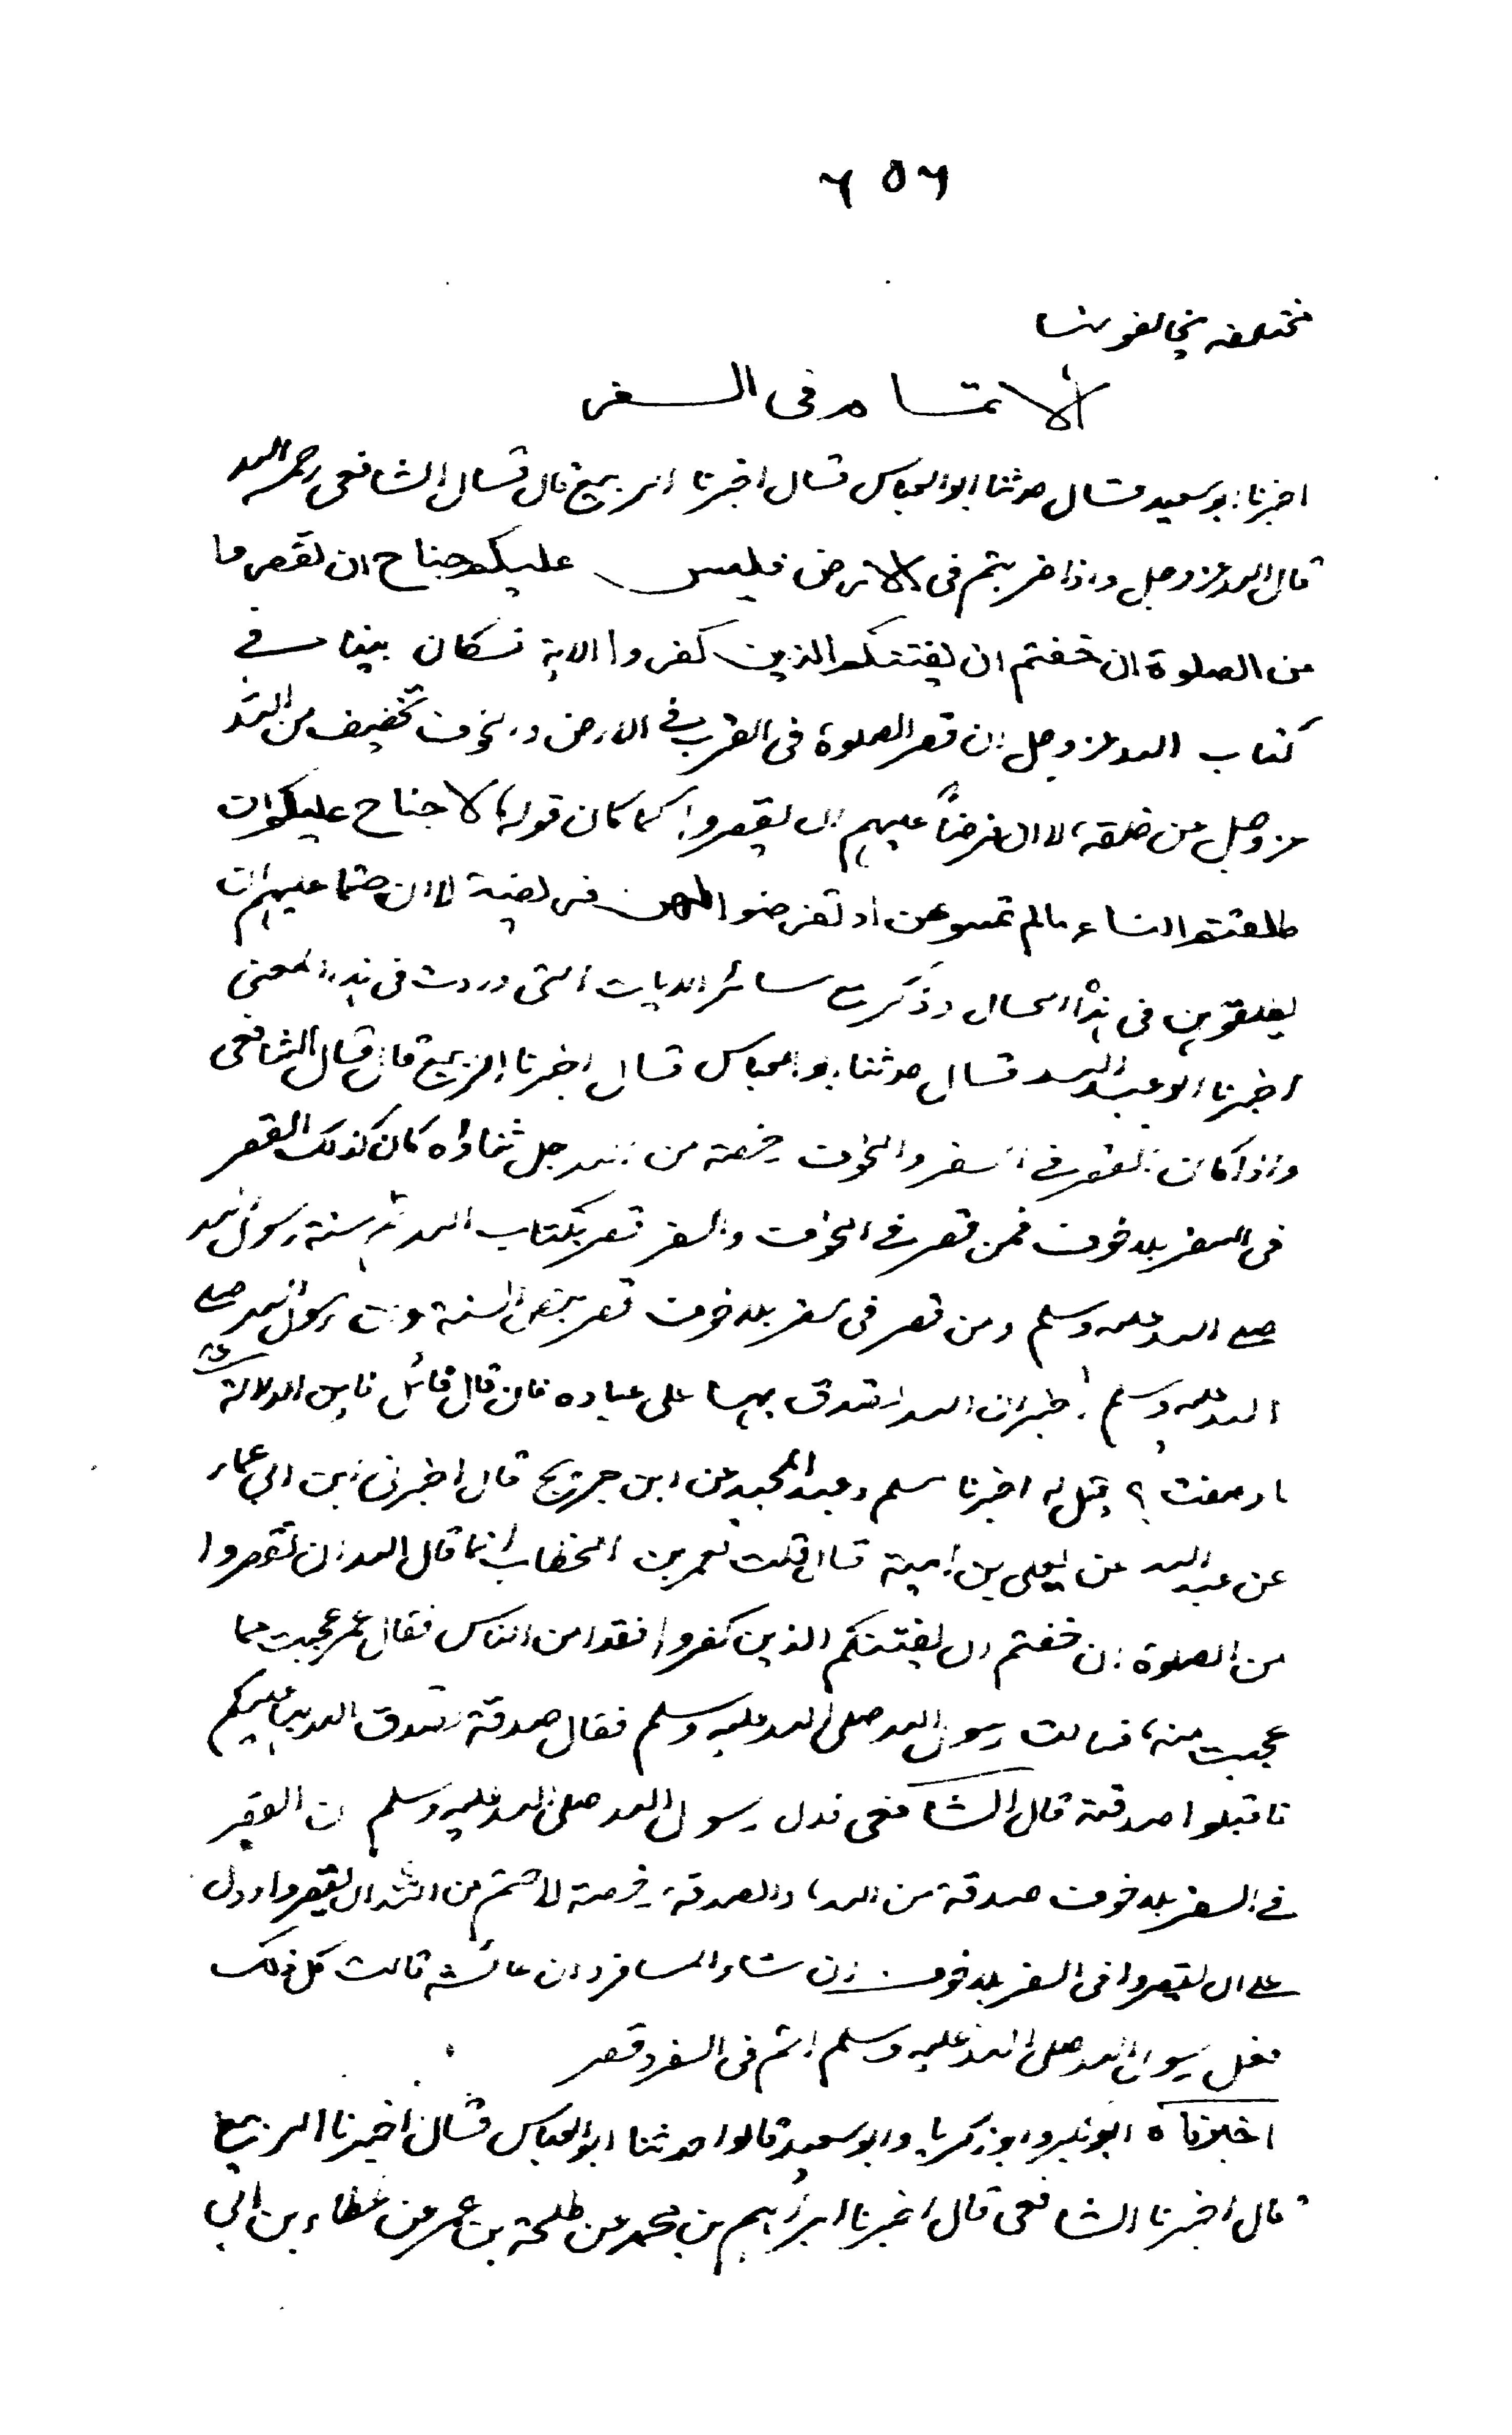 ٦٥٦
مختلفه يخالفونها
الاتمام فى السفر
اخبرنا ابو سعيد قال حدثنا ابو العباس قال اخبرنا الربيع قال قال الشافعى رحمه الله
قال الله عز وجل واذا ضربتم فى الارض فليس عليكم جناح ان تقصروا
من الصلوة ان خفتم ان يفتنكم الذين كفروا الاية فكان بينا فى
كتاب الله عز وجل ان قصر الصلوة فى الضرب فى الارض والخوف تخفيف من الله
عز وجل عن خلقه، لا ان فرضاً عليهم ان يقصروا كما كان قوله، لا جناح عليكم ان
طلقتم النساء مالم تمسوهن او تفرضوا لهن فريضة لا ان حتما عليهم ان
يطلقوهن فى هذا الحال وذكر سائر الايات التى وردت فى هذا المعنى
اخبرنا ابو عبد الله قال حدثنا ابو العباس قال اخبرنا الربيع قال قال الشافعى
واذا كان القصر فى السفر والخوف رخصة من الله جل ثناؤه كان كذلك القصر
فى السفر بلا خوف فمن قصر فى الخوف والسفر قصر بكتاب الله ثم سنة رسول الله
صلى الله عليه وسلم ومن قصر فى سفر بلا خوف قصر بنص السنة وان رسول الله صلى
الله عليه وسلم اخبر ان الله تصدق بها على عباده فان قال قائل فاين الدلالة على
ما وصفت؟ قيل له اخبرنا مسلم وعبد المجيد عن ابن جريج قال اخبرنى ابن ابى عمار
عن عبد الله عن يعلى بن امية قال قلت لعمر بن الخطاب انما قال الله ان تقصروا
من الصلوة ان خفتم ان يفتنكم الذين كفروا فقد امن الناس فقال عمر عجبت مما
عجبت منه، فسالت رسول الله صلى الله عليه وسلم فقال صدقة تصدق الله بها عليكم
فاقبلوا صدقته قال الشافعى فدل رسول الله صلى الله عليه وسلم ان القصر
فى السفر بلا خوف صدقة من الله، والصدقة رخصة لا حتم من الله ان يقصروا ودل
على ان يقصروا فى السفر بلا خوف ان شاء المسافر وان عائشة قالت كل ذلك
فعل رسول الله صلى الله عليه وسلم اتم فى السفر وقصر
اخبرناه ابو بكر وابو زكريا وابو سعيد قالوا حدثنا ابو العباس قال اخبرنا الربيع
قال اخبرنا الشافعى قال اخبرنا ابراهيم بن محمد عن طلحة بن عمر عن عطاء بن ابى